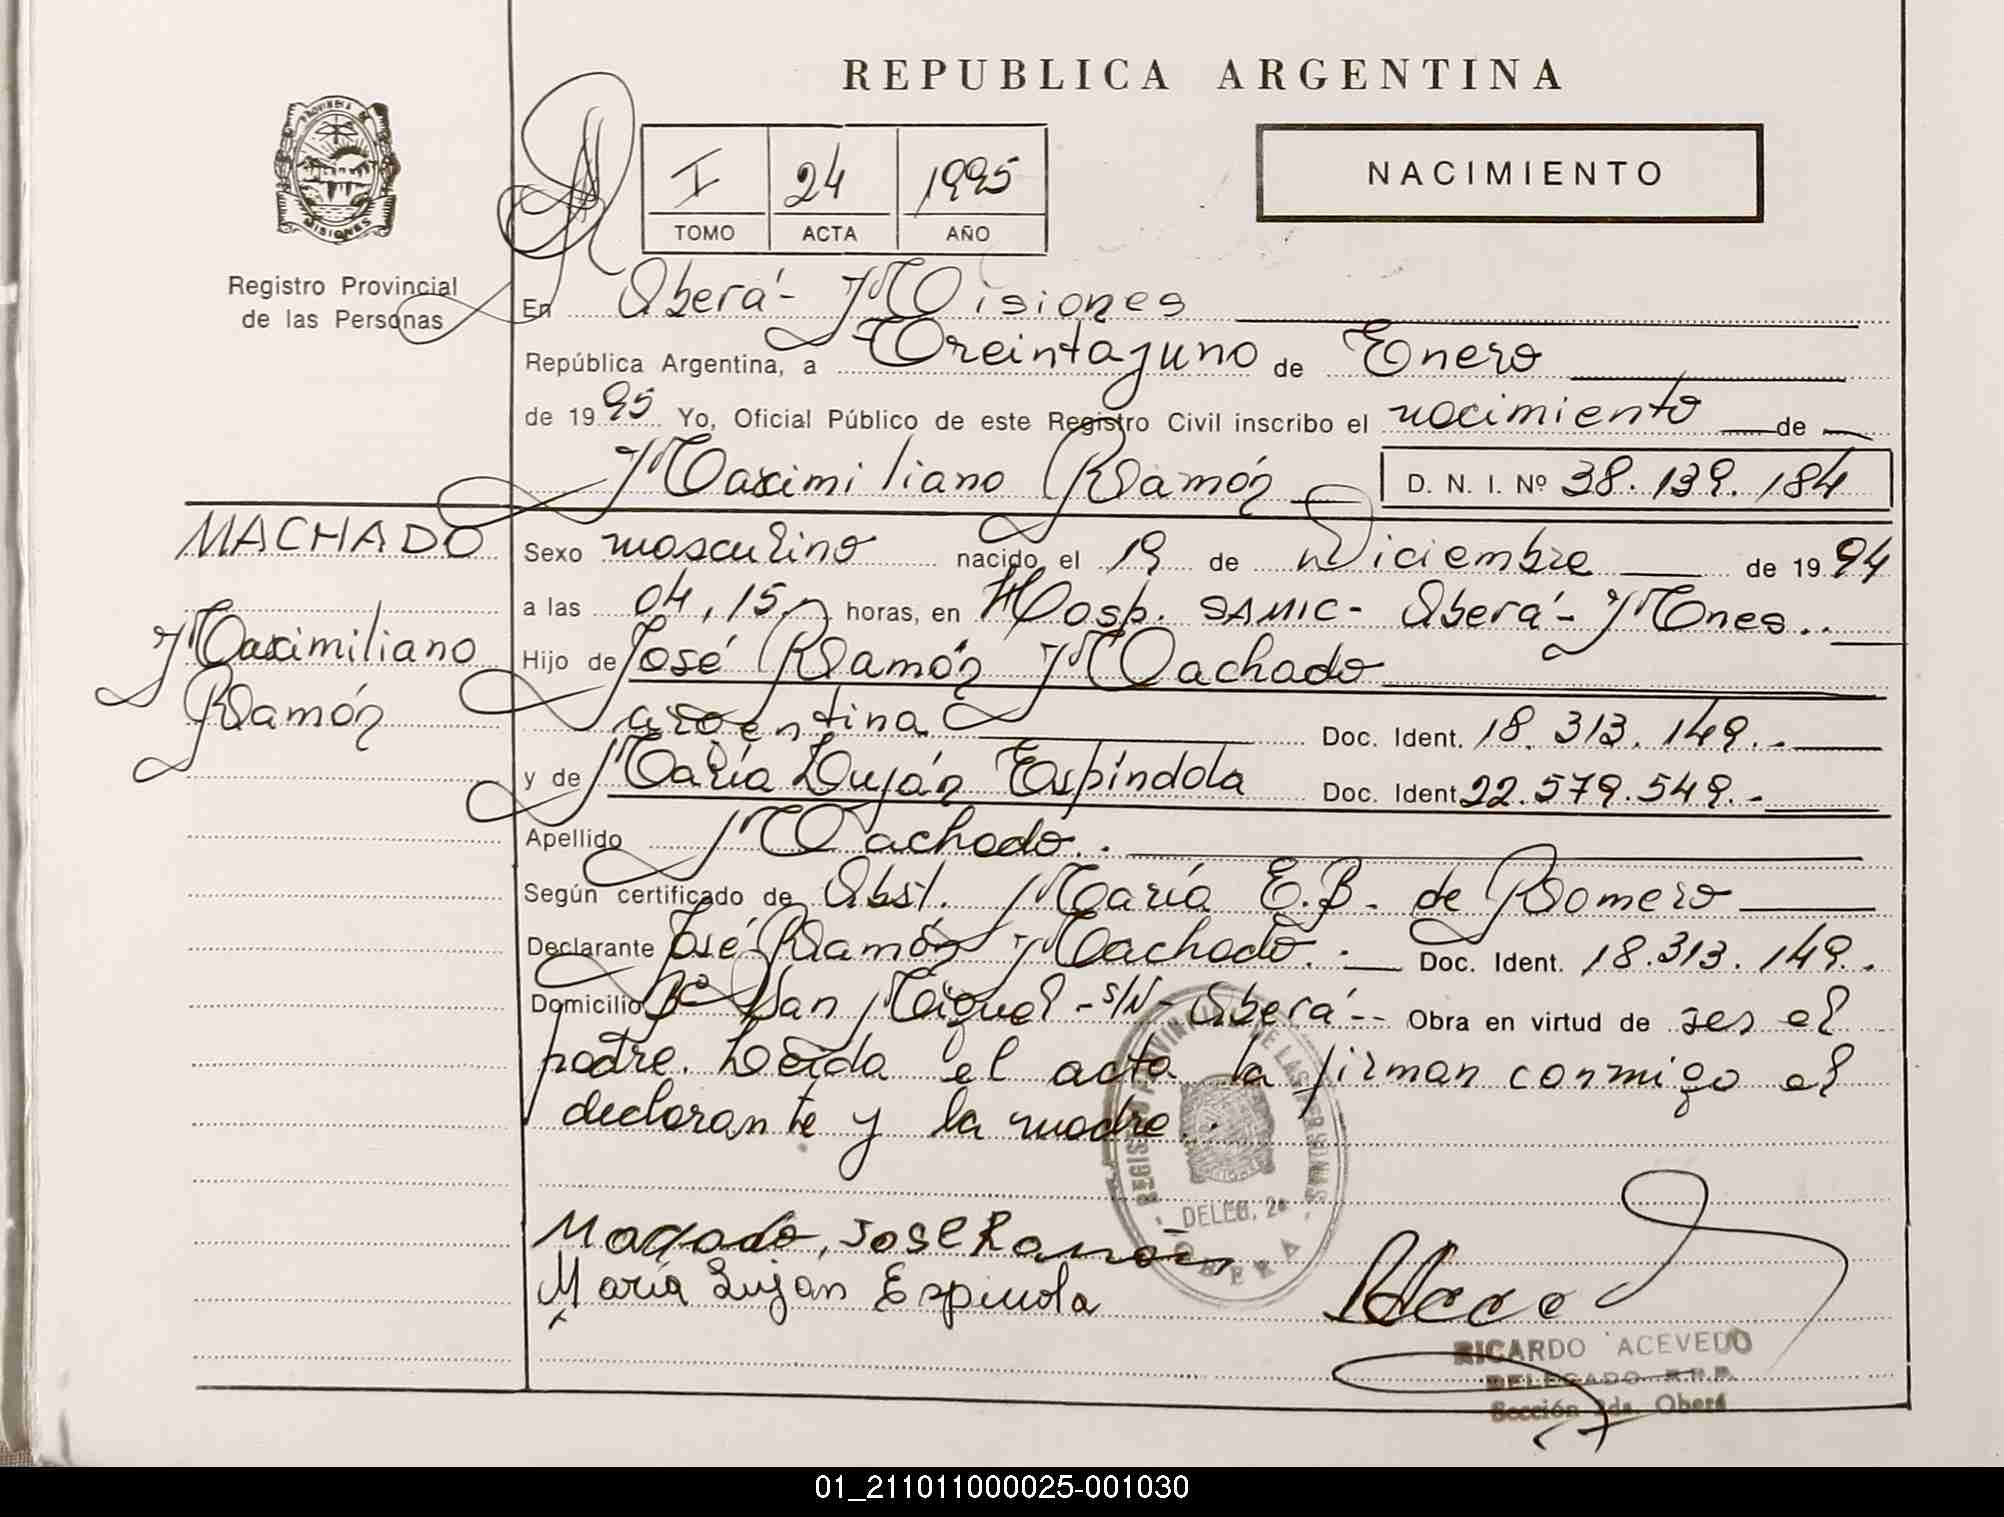 REPUBLICA ARGENTINA
PROVINCIA
MISIONES
I 24 1995
TOMO ACTA AÑO
NACIMIENTO
Registro Provincial
de las Personas
En Oberá- Misiones
República Argentina, a Treintayuno de Enero
de 1995 Yo, Oficial Público de este Registro Civil inscribo el nacimiento de
Maximiliano Ramón D. N. I. Nº 38.139.184
MACHADO
Maximiliano
Ramón
Sexo masculino nacido el 19 de Diciembre de 1994
a las 04,15,- horas, en Hosp. SAMIC- Oberá- Mnes..
Hijo de José Ramón Machado
argentina Doc. Ident. 18.313.149.-
y de María Luján Espíndola Doc. Ident. 22.579.549.-
Apellido Machado..
Según certificado de Obst. María E.B. de Romero
Declarante José Ramón Machado.- Doc. Ident. 18.313.149..
Domicilio Bº San Miguel - s/N - Oberá-- Obra en virtud de ser el
padre. Leída el acta la firman conmigo el
declarante y la madre..
REGISTRO PROVINCIAL DE LAS PERSONAS
DELEG. 2ª
OBERA
Machado, Jose Ramon
María Lujan Espindola
RICARDO ACEVEDO
DELEGADO R.P.P.
Sección 2da. Oberá
01_211011000025-001030